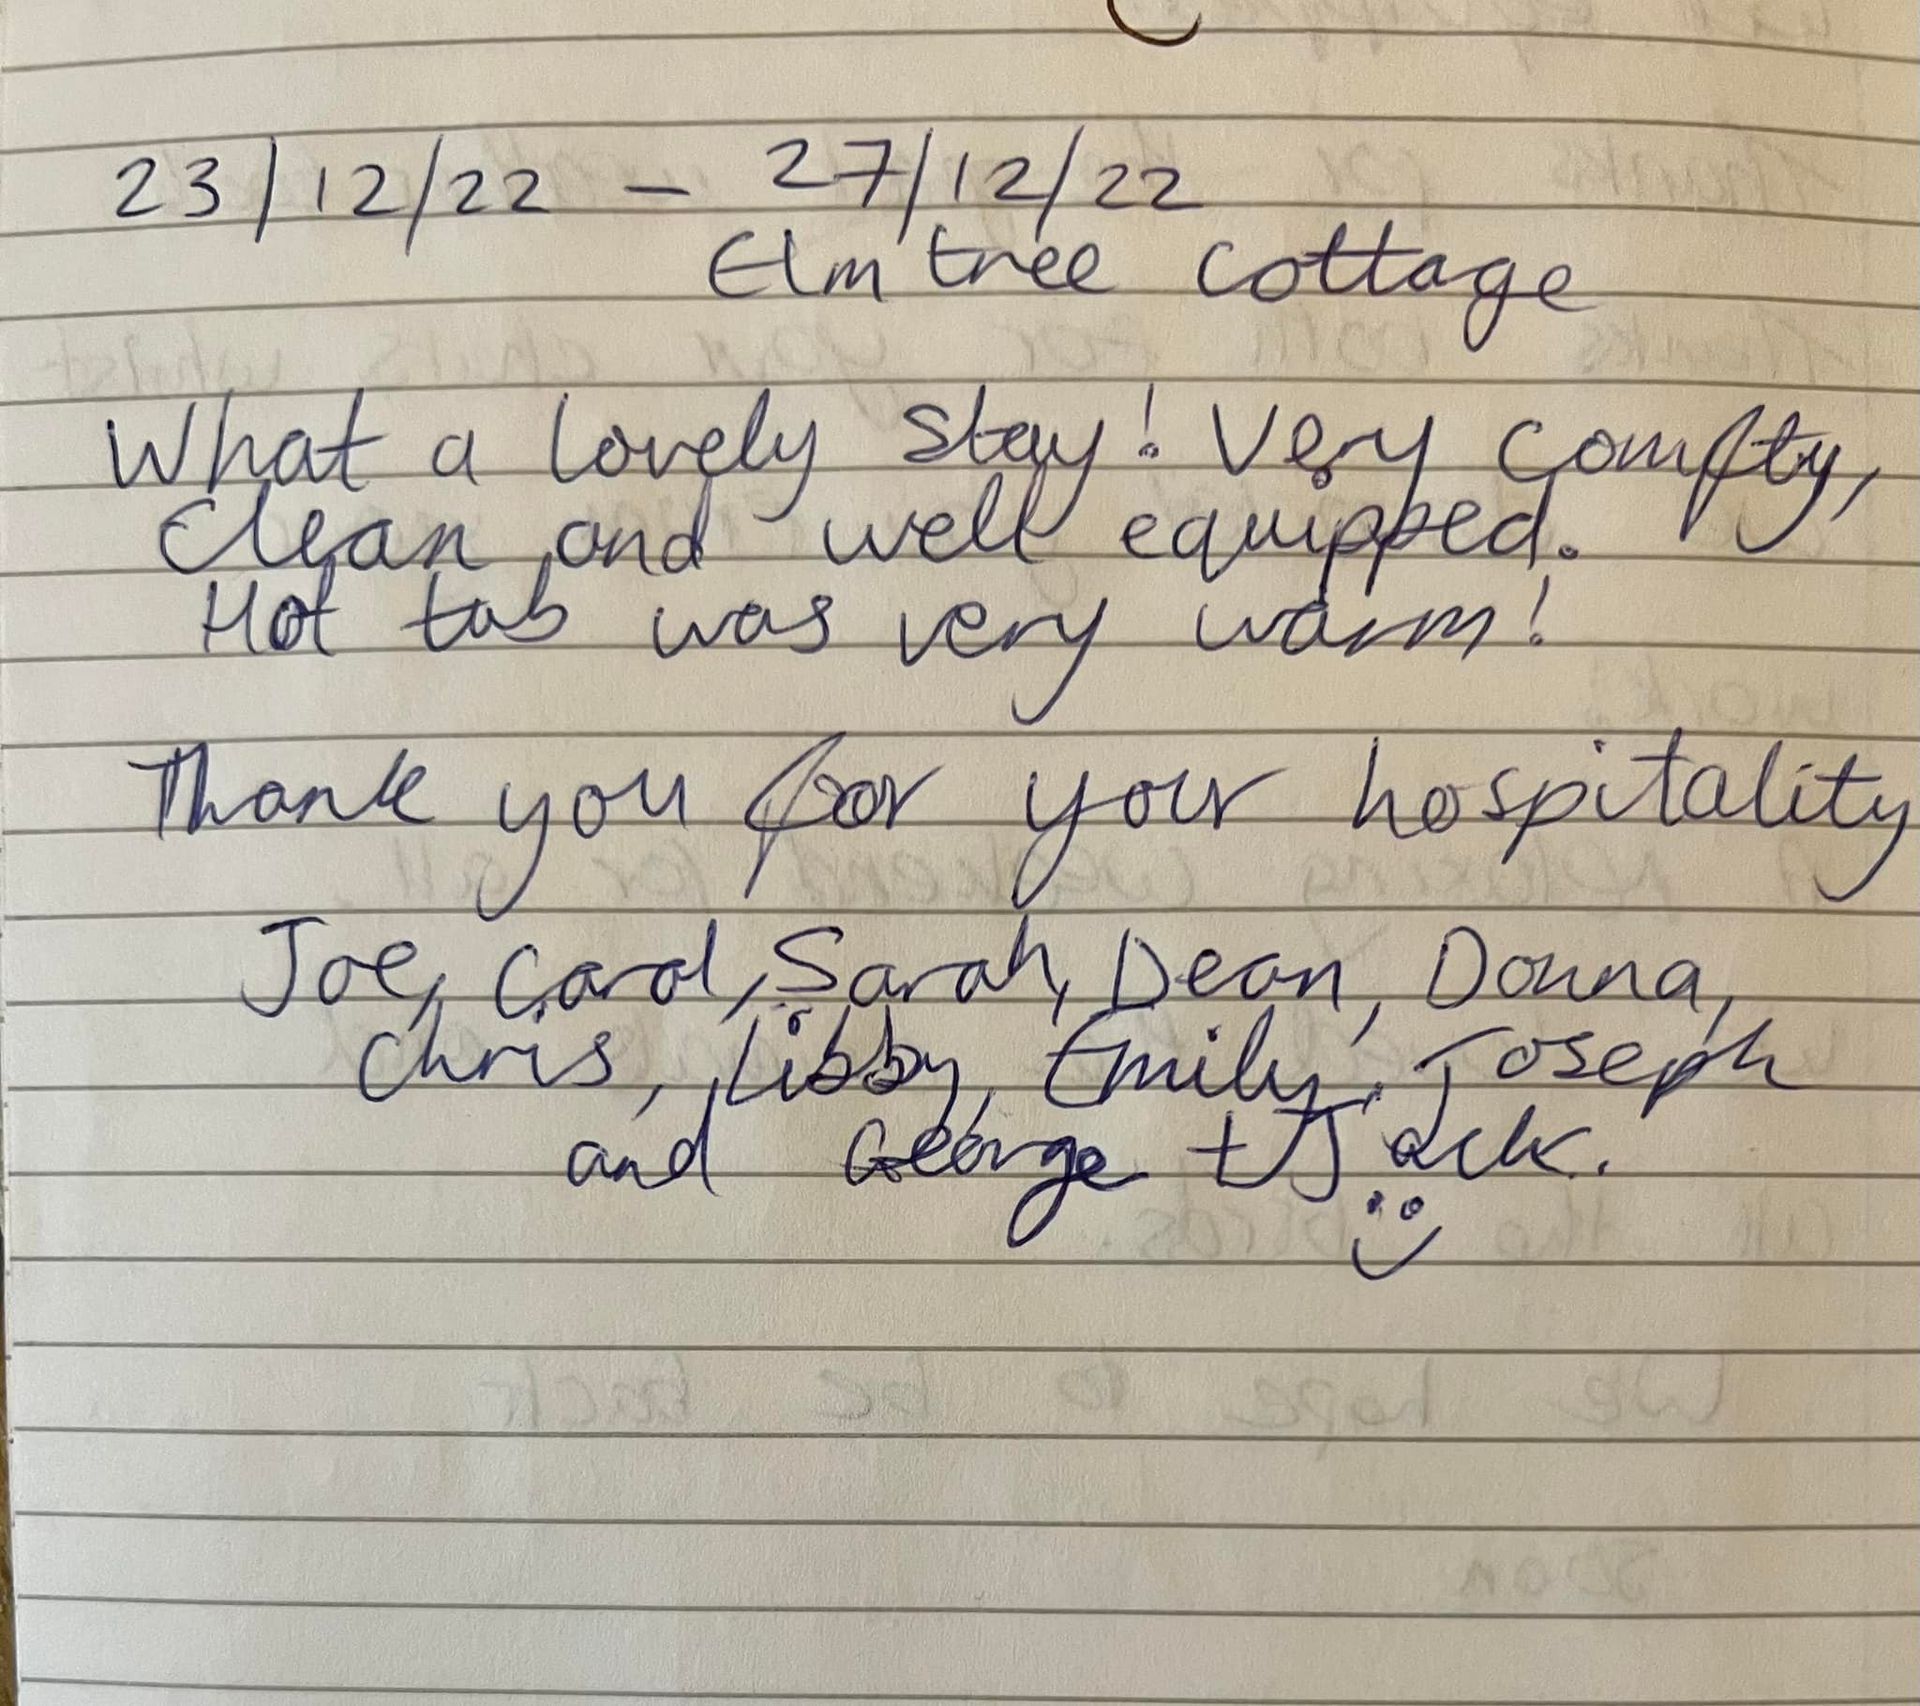 23/12/22 – 27/12/22
Elm tree cottage
What a lovely stay! Very comfty,
Clean and well equipped.
Hot tub was very warm!
Thank you for your hospitality
Joe, Carol, Sarah, Dean, Donna,
Chris, Libby, Emily, Joseph
and George + Jack.